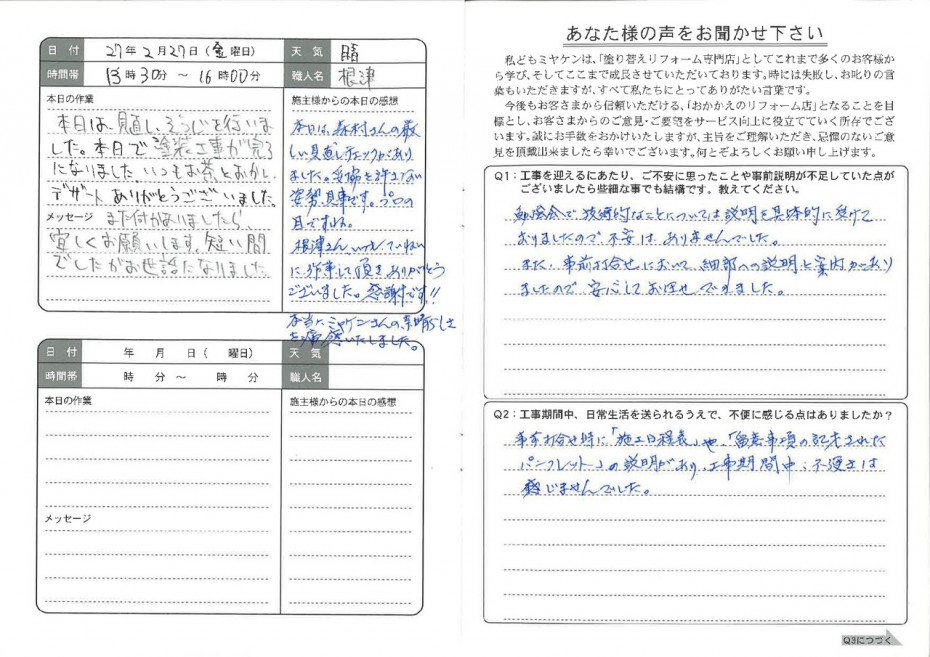 日付 27年2月27日(金曜日) 天気 晴
時間帯 13時30分 ～ 16時00分 職人名 根津
本日の作業
本日は、見直し、そうじを行いま
した。本日で塗装工事が完了
になりました いつもお茶とおかし、
デザート ありがとうございました。
メッセージ また何かありましたら、
宜しくお願いします。短い間
でしたがお世話になりました
施主様からの本日の感想
本日は、森村さんの厳
しい見直しチェックがあり
ました。妥協を許さない
姿勢、見事です。プロの
目ですね。
根津さん、いつもていねい
に作業して頂きありがとう
ございました。感謝です!!
本当にミヤケンさんの素晴らしさ
を痛感いたしました。
日付 年 月 日( 曜日) 天気
時間帯 時 分 ～ 時 分 職人名
本日の作業
メッセージ
施主様からの本日の感想
あなた様の声をお聞かせ下さい
私どもミヤケンは、「塗り替えリフォーム専門店」としてこれまで多くのお客様か
ら学び、そしてここまで成長させていただいております。時には失敗し、お叱りの言
葉もいただきますが、すべて私たちにとってありがたい言葉です。
今後もお客さまから信頼いただける、「おかかえのリフォーム店」となることを目
標とし、お客さまからのご意見・ご要望をサービス向上に役立てていく所存でござ
います。誠にお手数をおかけいたしますが、主旨をご理解いただき、忌憚のないご意
見を頂戴出来ましたら幸いでございます。何とぞよろしくお願い申し上げます。
Q1：工事を迎えるにあたり、ご不安に思ったことや事前説明が不足していた点が
ございましたら些細な事でも結構です。教えてください。
勉強会で技術的なことについては説明を具体的に受けて
おりましたので、不安はありませんでした。
また、事前打合せにおいて、細部への説明と案内があり
ましたので、安心してお任せできました。
Q2：工事期間中、日常生活を送られるうえで、不便に感じる点はありましたか？
事前打合せ時に「施工日程表」や、「留意事項の記されれた
パンフレット」の説明があり、工事期間中、不便さは
感じませんでした。
Q3につづく